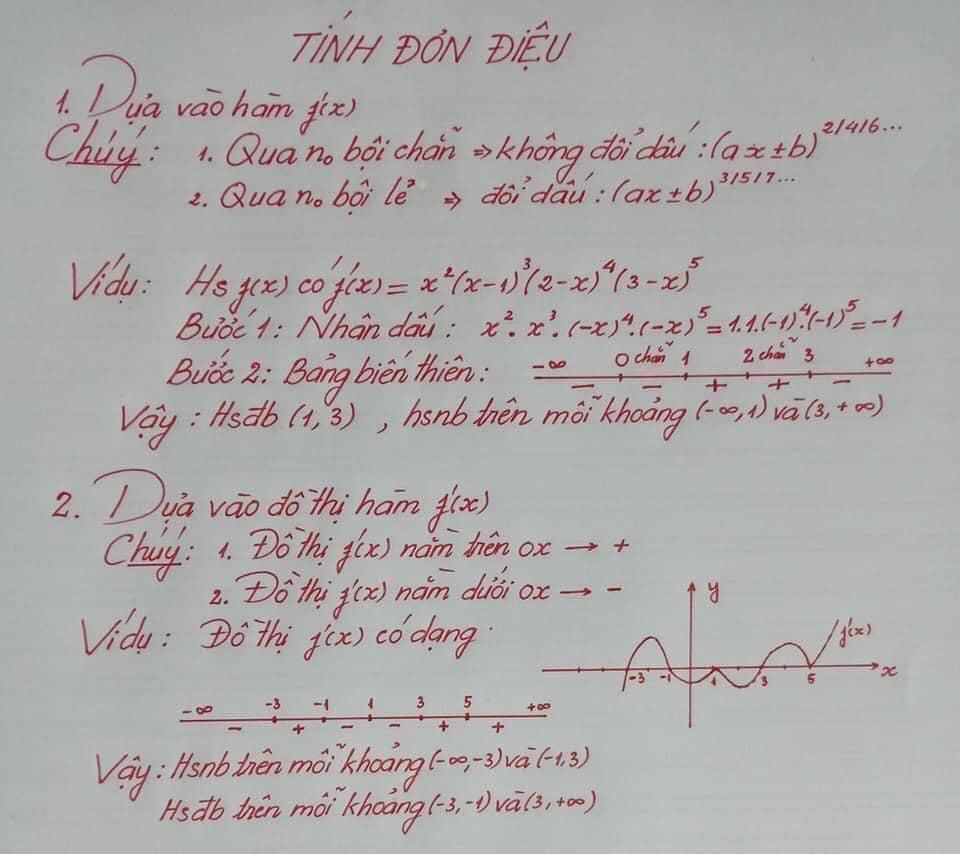 TÍNH ĐƠN ĐIỆU
1. Dựa vào hàm f'(x)
Chú ý: 1. Qua n₀ bội chẵn => không đổi dấu : (ax ± b)^2/4/6...
2. Qua n₀ bội lẻ => đổi dấu : (ax ± b)^3/5/7...
Ví dụ: Hs f(x) có f'(x) = x²(x-1)³(2-x)⁴(3-x)⁵
Bước 1: Nhân dấu: x². x³. (-x)⁴. (-x)⁵ = 1.1.(-1)⁴.(-1)⁵ = -1
Bước 2: Bảng biến thiên:
-∞ 0 chẵn 1 2 chẵn 3 +∞
- - + + -
Vậy: Hsđb (1, 3) , hsnb trên mỗi khoảng (-∞, 1) và (3, +∞)
2. Dựa vào đồ thị hàm f'(x)
Chú ý: 1. Đồ thị f'(x) nằm trên ox → +
2. Đồ thị f'(x) nằm dưới ox → -
Ví dụ: Đồ thị f'(x) có dạng
y
f'(x)
-3 -1 1 3 5 x
-∞ -3 -1 1 3 5 +∞
- + - - + +
Vậy: Hsnb trên mỗi khoảng (-∞, -3) và (-1, 3)
Hsđb trên mỗi khoảng (-3, -1) và (3, +∞)